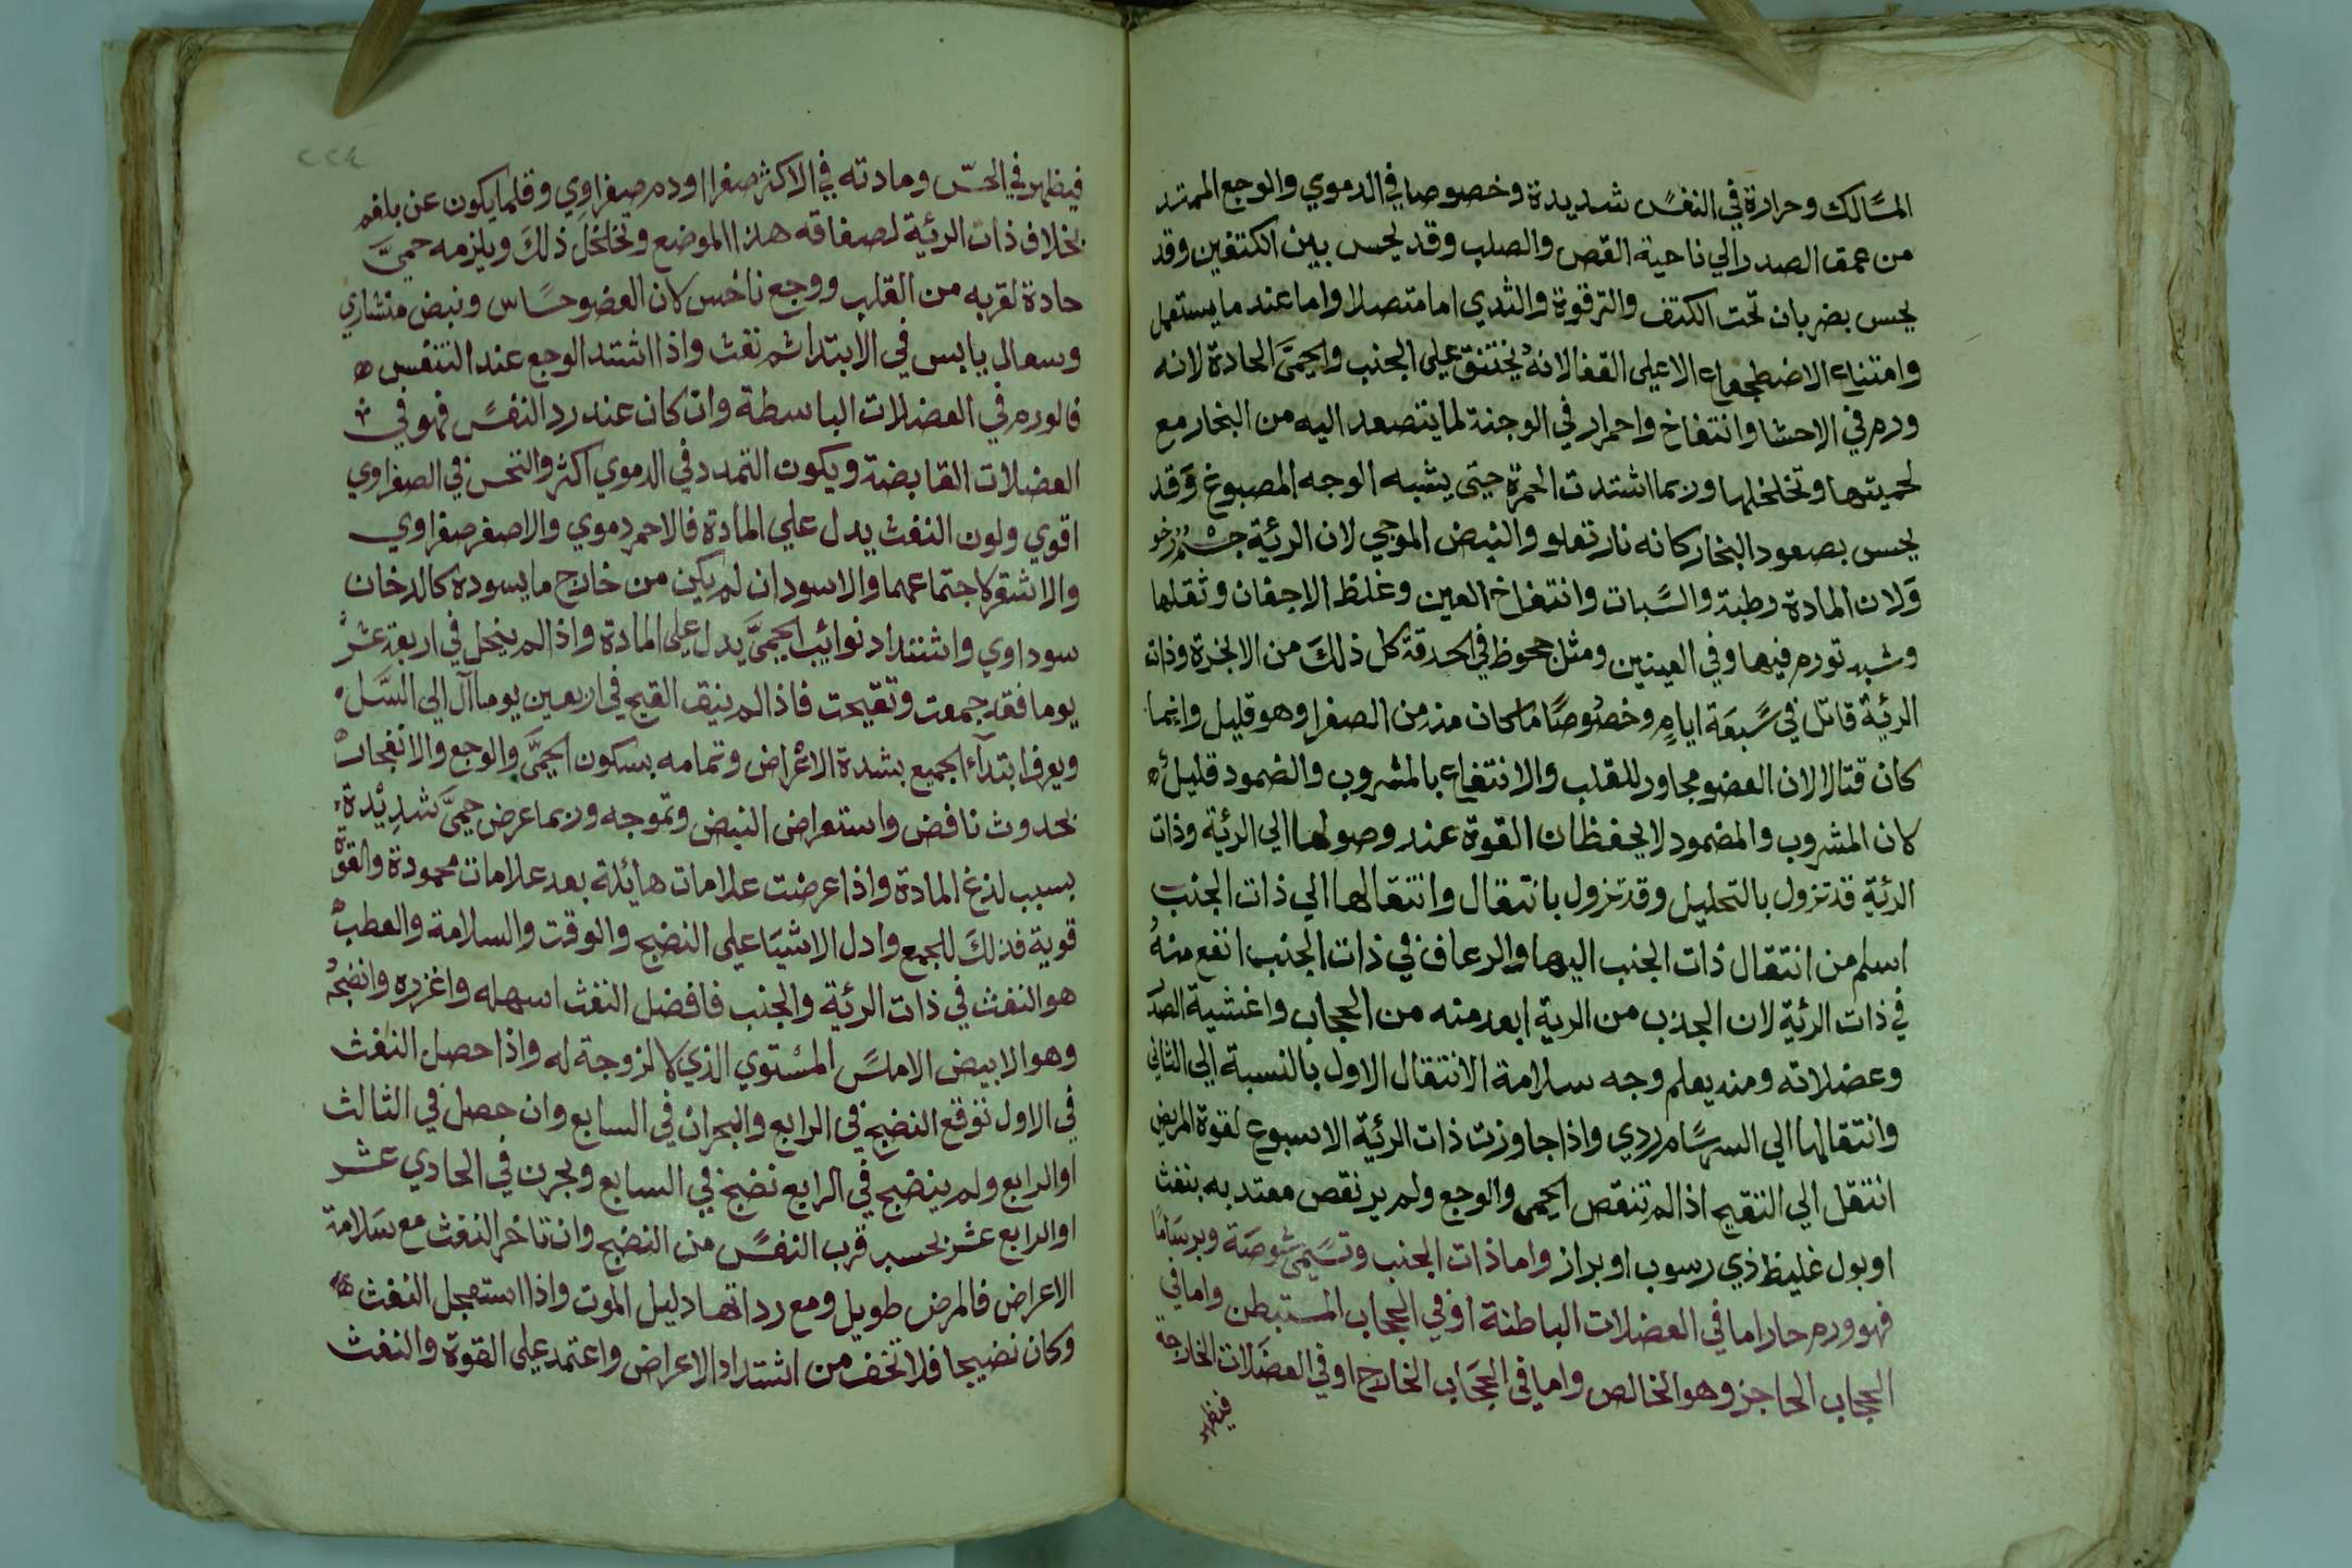 المسالك وحرارة في النفس شديدة وخصوصا في الدموي والوجع الممتد
من عمق الصدر الي ناحية القص والصلب وقد يحس بين الكتفين وقد
يحس بضربان تحت الكتف والترقوة والثدي اما متصلا واما عند ما يستعمل
وامتناع الاضطجاع الا علي القفا لانه يختنق علي الجنب والحمي الحادة لانه
ورم في الاحشا وانتفاخ واحمرار في الوجنة لما يتصعد اليه من البخار مع
لحميتها وتخلخلها وربما اشتدت الحمرة حتي يشبه الوجه المصبوغ وقد
يحس بصعود البخار كانه نار تعلو والنبض الموجي لان الرئية جسم رخو
ولان المادة رطبة والسبات وانتفاخ العين وغلظ الاجفان وثقلها
وشبه تورم فيها وفي العينين ومثل جحوظ في الحدقة كل ذلك من الابخرة وذات
الرئية قاتل في سبعة ايام وخصوصا ما كان منه من الصفرا وهو قليل وانما
كان قتالا لان العضو مجاور للقلب والانتفاع بالمشروب والضمود قليل
لان المشروب والمضمود لا يحفظان القوة عند وصولها الي الرئية وذات
الرئية قد تزول بالتحليل وقد تزول بانتقال وانتقالها الي ذات الجنب
اسلم من انتقال ذات الجنب اليها والرعاف في ذات الجنب انفع منه
في ذات الرئية لان الجذب من الرية ابعد منه من الحجاب واغشية الصدر
وعضلاته ومنه يعلم وجه سلامة الانتقال الاول بالنسبة الي الثاني
وانتقالها الي السرسام ردي واذا جاوزت ذات الرئية الاسبوع لقوة المريض
انتقل الي التقيح اذا لم تنقص الحمي والوجع ولم ير نقص معتد به بنفث
او بول غليظ ذي رسوب او براز واما ذات الجنب وتسمي شوصة وبرساما
فهو ورم حار اما في العضلات الباطنة او في الحجاب المستبطن واما في
الحجاب الحاجز وهو الخالص واما في الحجاب الخارج او في العضلات الخارجة
فيظهر
فيظهر في الحس ومادته في الاكثر صفرا او دم صفراوي وقلما يكون عن بلغم
بخلاف ذات الرئية لصفاقة هذا الموضع وتخلخل ذلك ويلزمه حمي
حادة لقربه من القلب ووجع ناخس لان العضو حساس ونبض منشاري
وسعال يابس في الابتدا ثم نفث واذا اشتد الوجع عند التنفس
فالورم في العضلات الباسطة وان كان عند رد النفس فهو في
العضلات القابضة ويكون التمدد في الدموي اكثر والنخس في الصفراوي
اقوي ولون النفث يدل علي المادة فالاحمر دموي والاصفر صفراوي
والاشقر لاجتماعهما والاسود ان لم يكن من خارج ما يسوده كالدخان
سوداوي واشتداد نوائب الحمي يدل علي المادة واذا لم ينحل في اربعة عشر
يوما فقد جمعت وتقيحت فاذا لم ينق القيح في اربعين يوما آل الي السل
ويعرف ابتداء الجميع بشدة الاعراض وتمامه بسكون الحمي والوجع والانفجار
بحدوث نافض واستعراض النبض وتموجه وربما عرض حمي شديدة
بسبب لذع المادة واذا عرضت علامات هائلة بعد علامات محمودة والقوة
قوية فذلك للجمع وادل الاشيا علي النضج والوقت والسلامة والعطب
هو النفث في ذات الرئية والجنب فافضل النفث اسهله واغزره وانضجه
وهو الابيض الاملس المستوي الذي لا لزوجة له واذا حصل النفث
في الاول توقع النضج في الرابع والبحران في السابع وان حصل في الثالث
او الرابع ولم ينضج في الرابع نضج في السابع وبحرن في الحادي عشر
او الرابع عشر بحسب قرب النفس من النضج وان تاخر النفث مع سلامة
الاعراض فالمرض طويل ومع رداتها دليل الموت واذا استعجل النفث
وكان نضيجا فلا تخف من اشتداد الاعراض واعتمد علي القوة والنفث